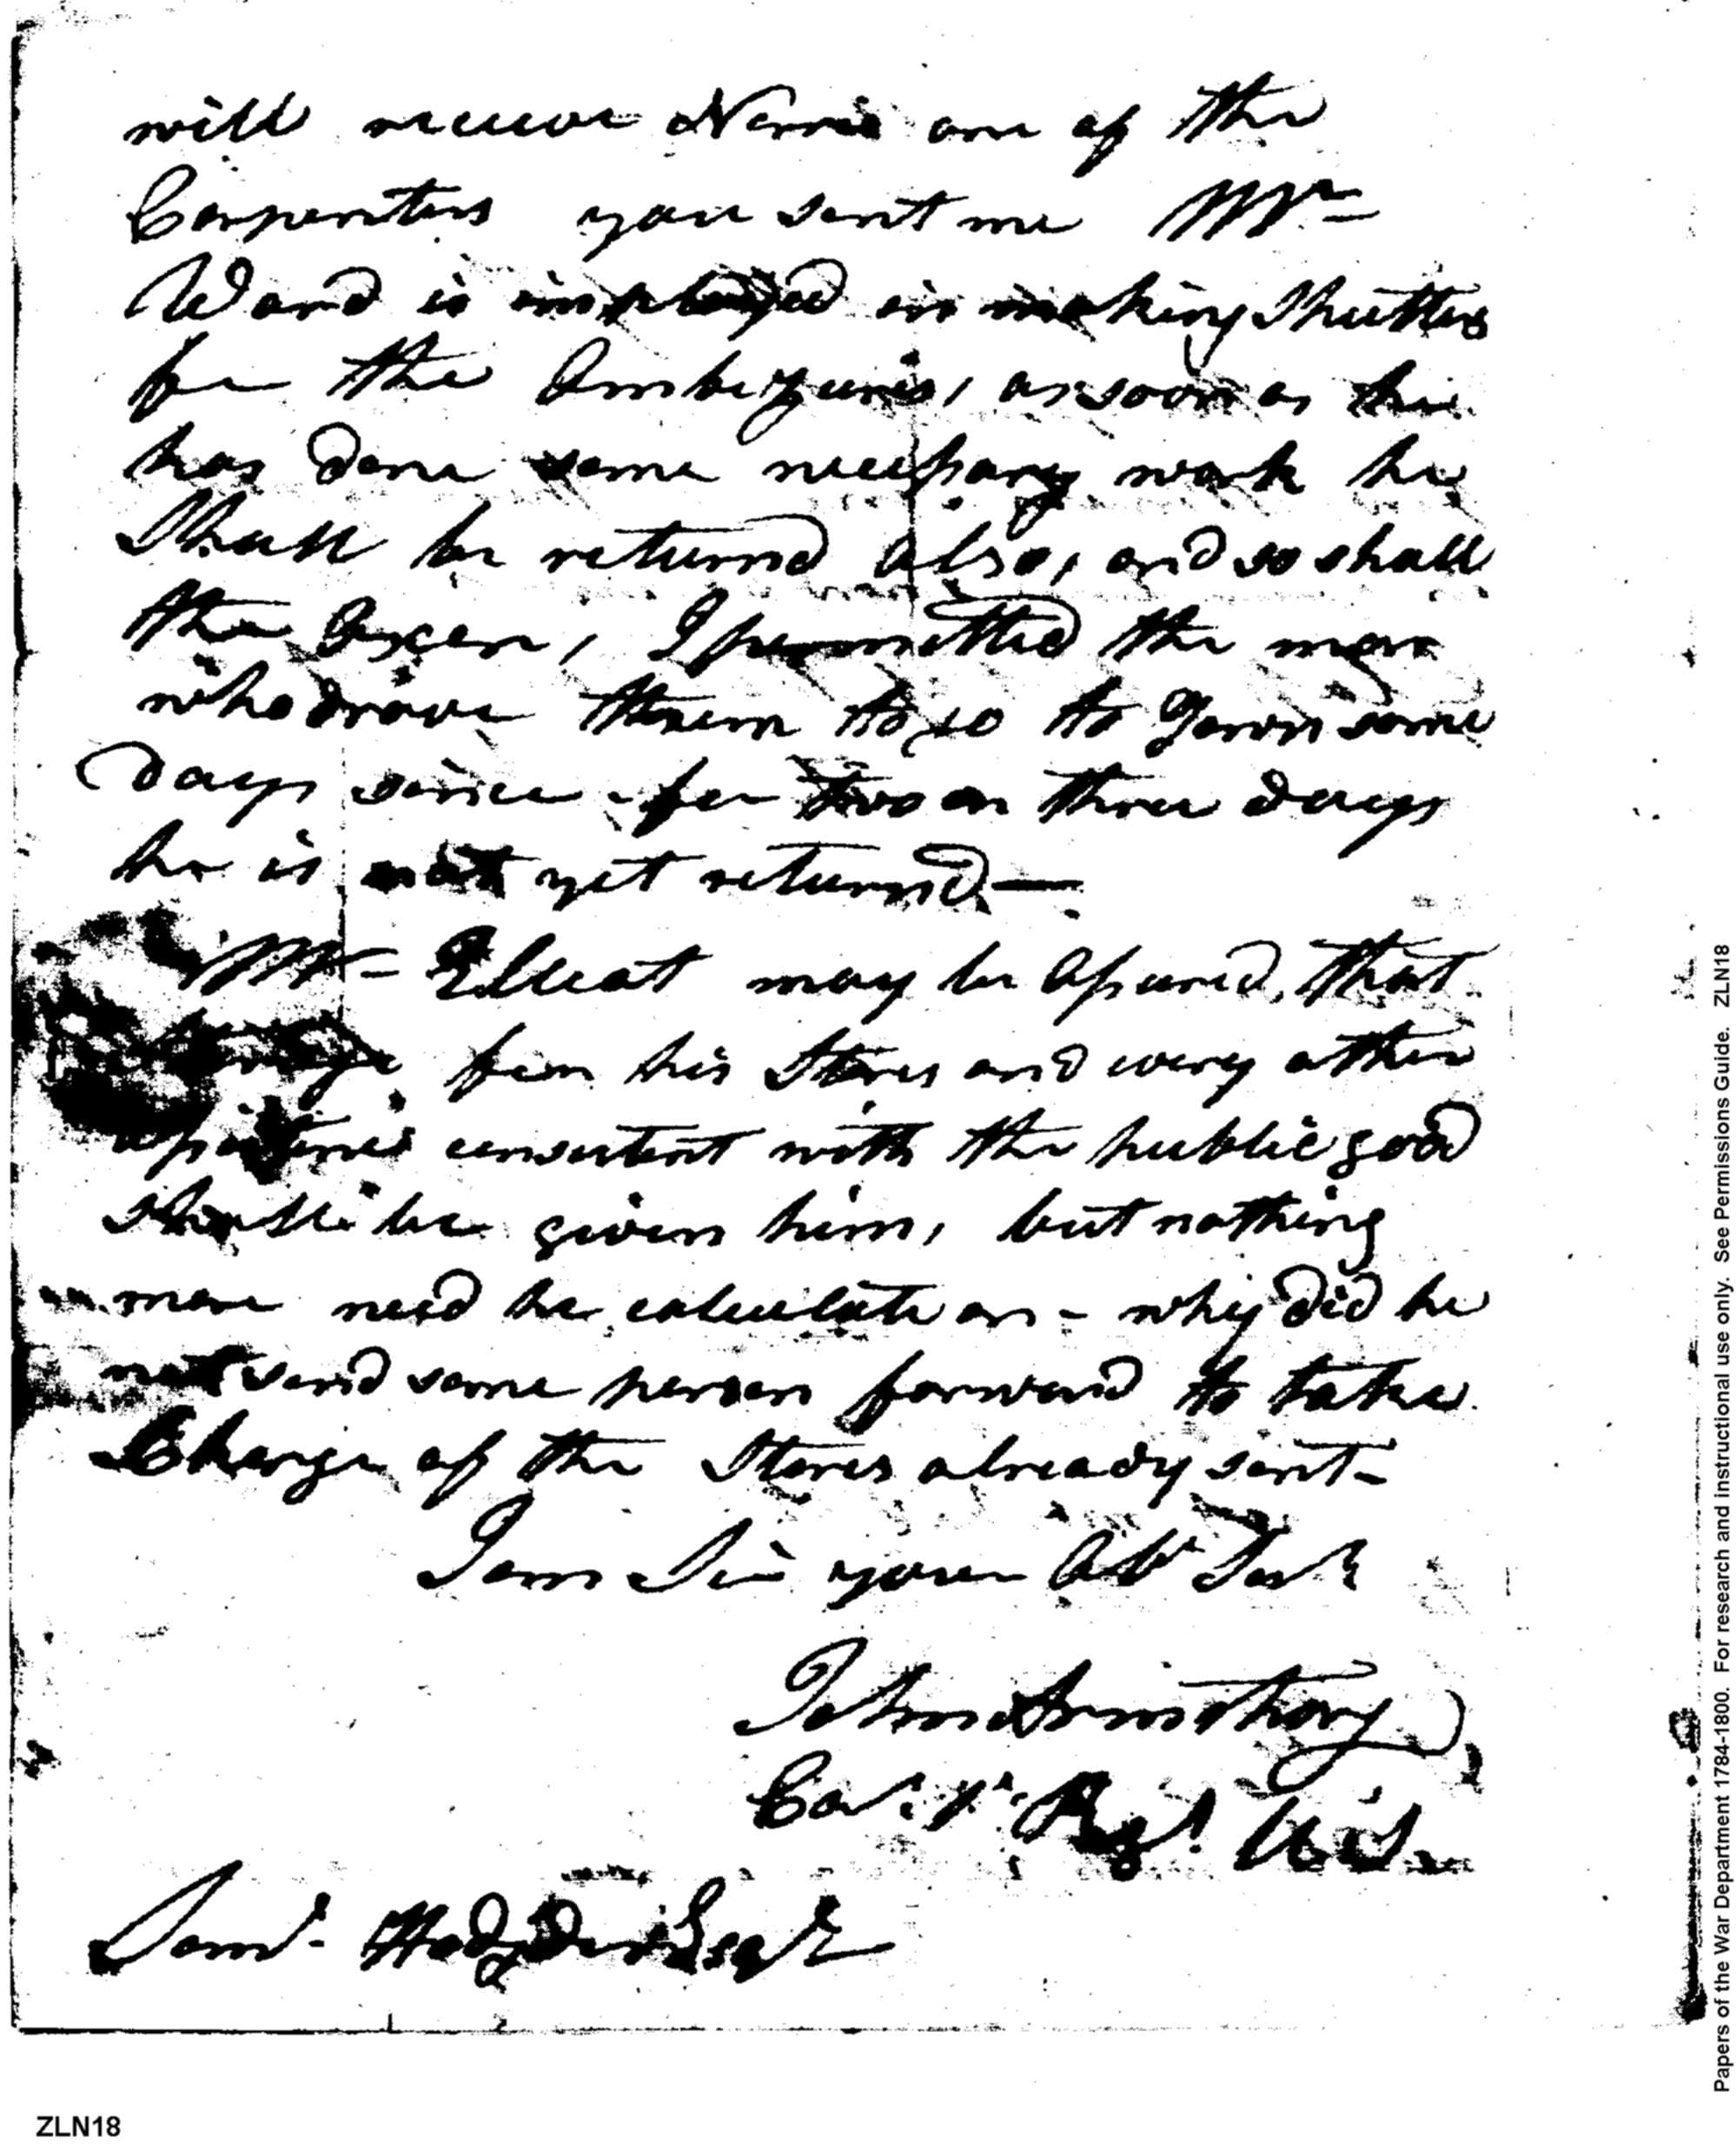 will receive Norris one of the
Carpenters you sent me Mr
Ward is imployed in making Shutters
for the Embezures, as soon as he
has done some necessary work he
Shall be returnd also, and so shall
the Oxen, I permitted the man
who drove them to go to Town some
days since - for two or three days
he is not yet returnd —
Mr Elleat may be assured, that
Storage for his Stores and every other
assistance consistent with the public good
shall be given him, but nothing
more need he calculate on - why did he
not send some person forward to take
Charge of the Stores already sent -
I am Sir your Obt Sert
John Armstrong
Capt. 1t. Regt. U.S.
Saml. Hodgdon Esqr
Papers of the War Department 1784-1800. For research and instructional use only. See Permissions Guide. ZLN18
ZLN18